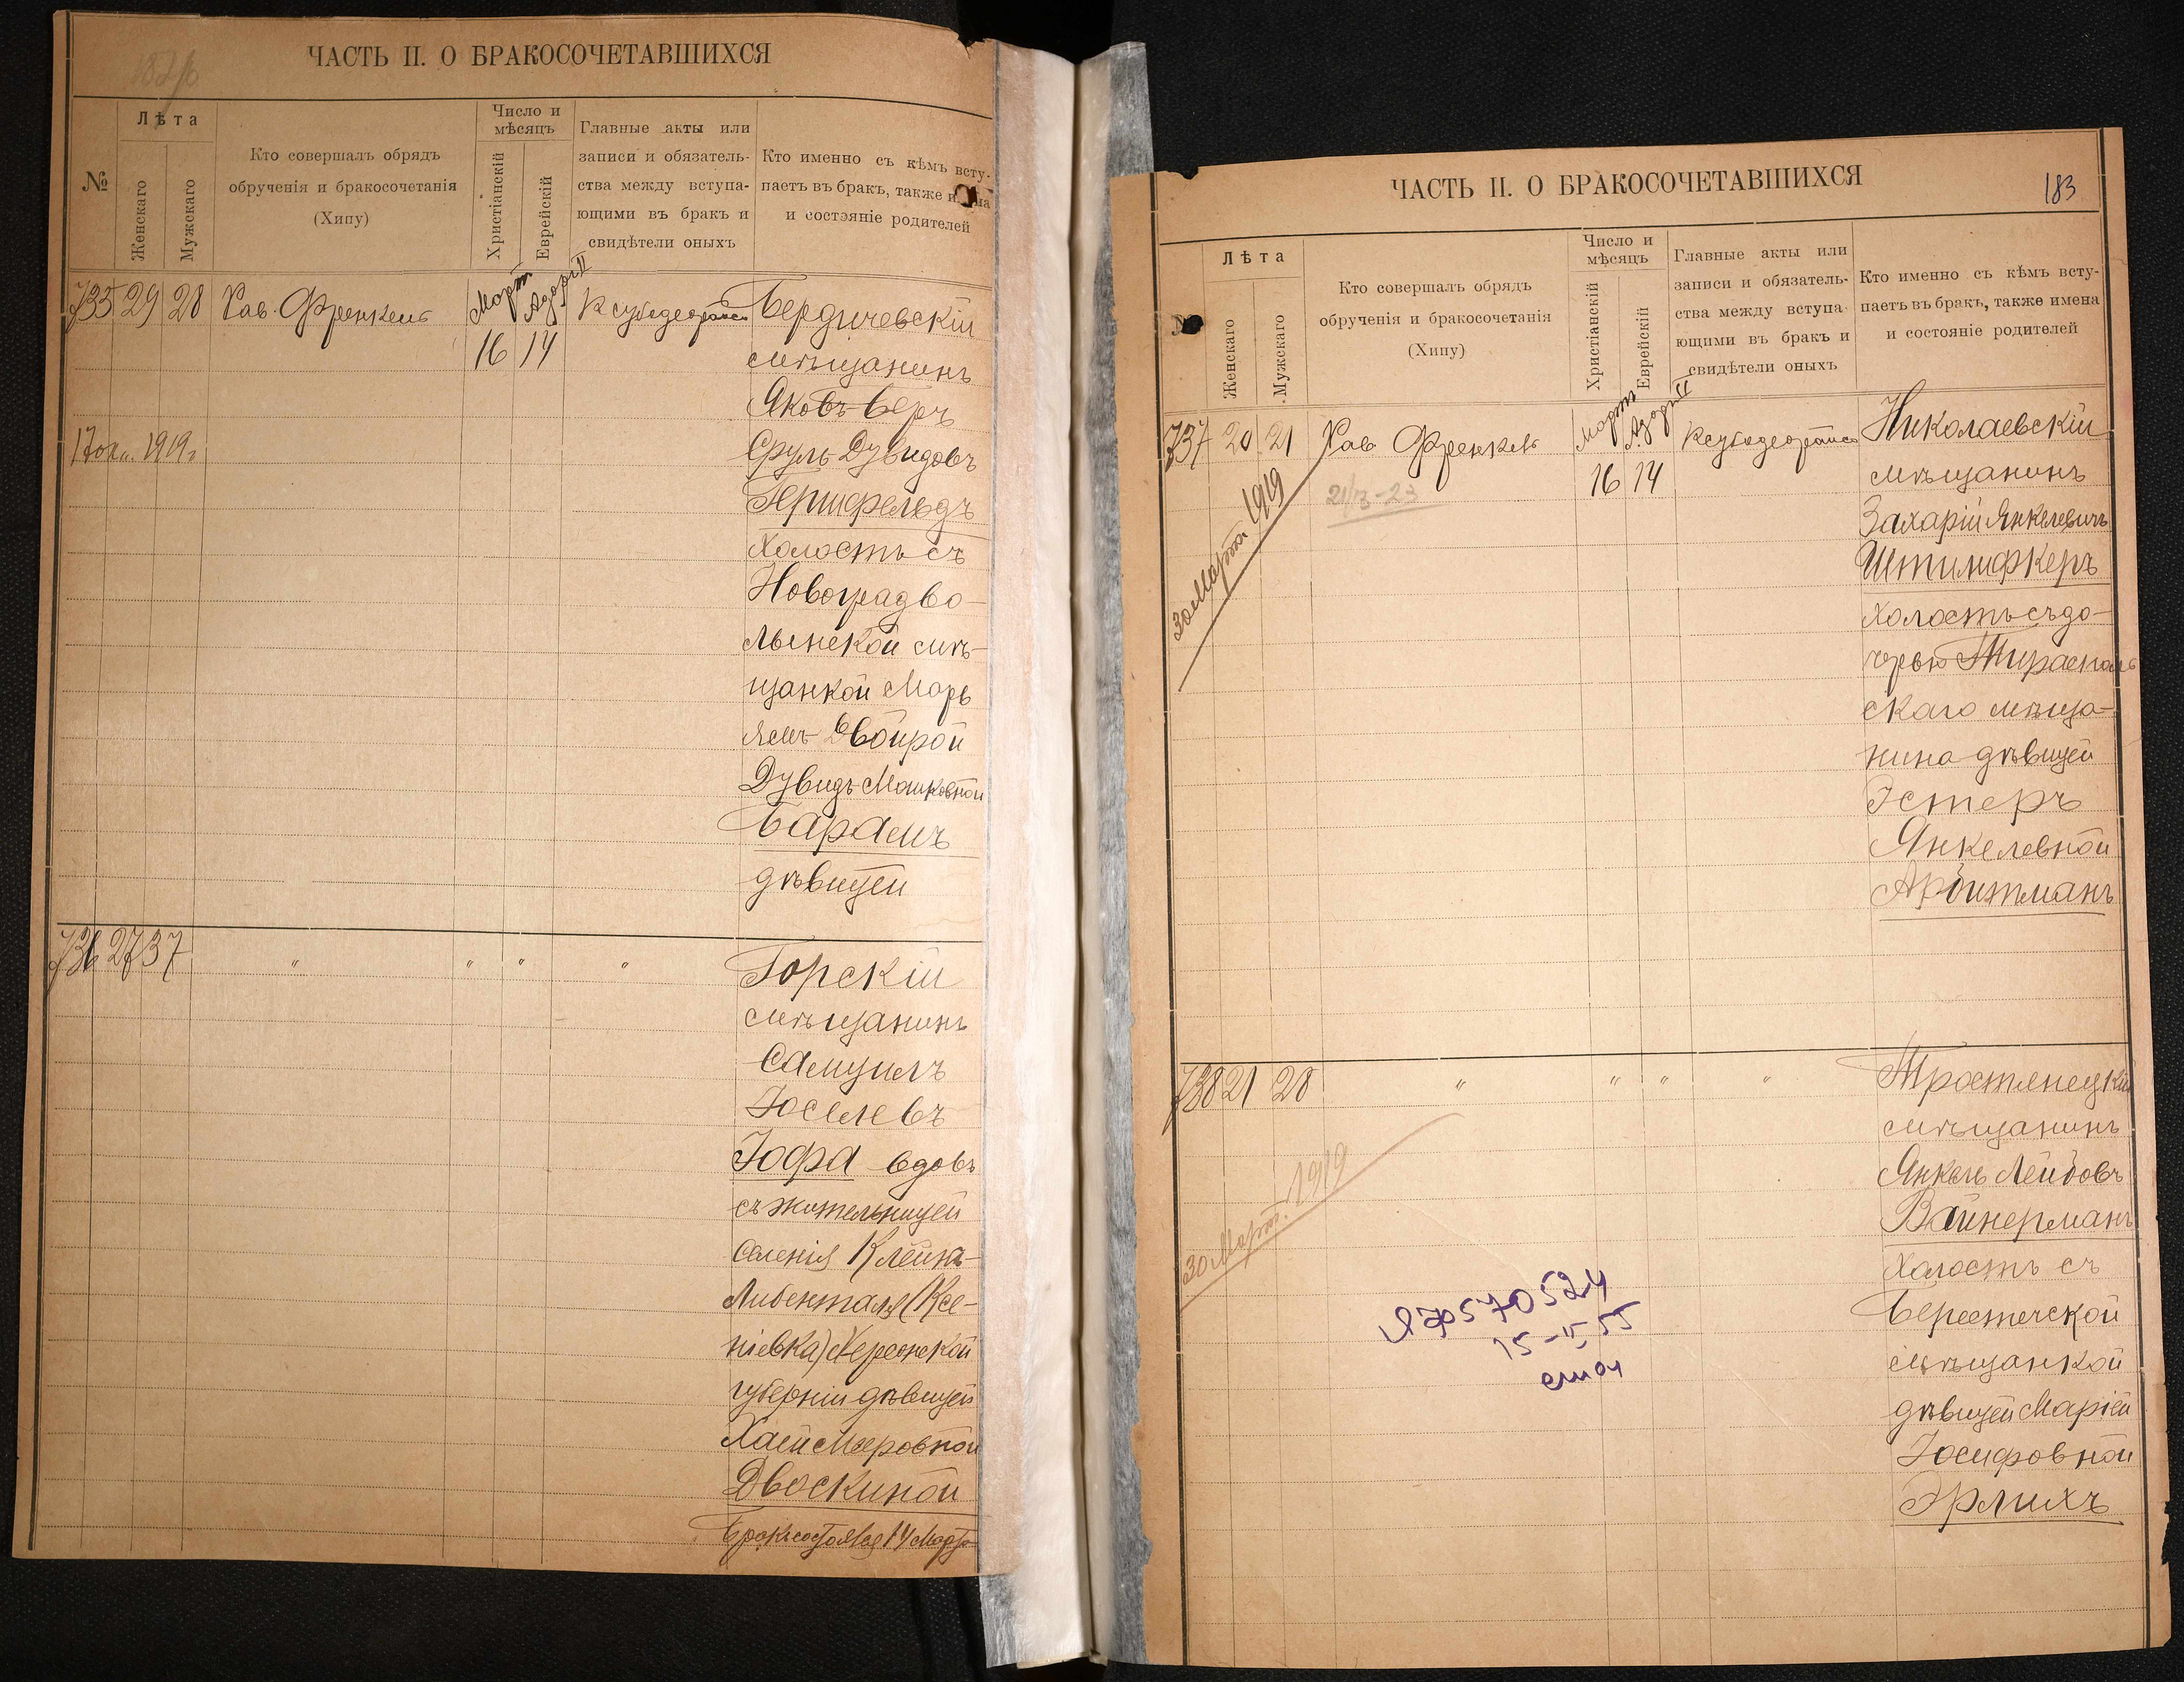 ЧАСТЬ II. О БРАКОСОЧЕТАВШИХСЯ
№
Лѣта
Женскаго
Мужскаго
Кто совершалъ обрядъ
обрученія и бракосочетанія
(Хипу)
Число и
мѣсяцъ
Христіанскій
Еврейскій
Главные акты или
записи и обязатель-
ства между вступа-
ющими въ бракъ и
свидѣтели оныхъ
Кто именно съ кѣмъ всту-
паетъ въ бракъ, также
и состояніе родителей
735 29 28 Рав. Френкель Мартъ Адаръ II Бердичевскій
16 14 мѣщанинъ
Яковъ-Беръ
Сруль Дувидовъ
1919
Гершфельдъ
холостъ съ
Новоградво-
лынской мѣ-
щанкой Марь
ямъ Двойрой
Дувидъ-Мошковной
Барамъ
дѣвицей
736 27 37 " " " " Горскій
мѣщанинъ
Самуилъ
Іоселевъ
Іофа вдовъ
съ жительницей
селенія Клейнъ-
Либенталя (Ксе-
ніевка) Херсонской
губерніи дѣвицей
Хаей Мееровной
Двоскиной
Бракъ состоялся 14 Марта
ЧАСТЬ II. О БРАКОСОЧЕТАВШИХСЯ
183
Лѣта
Женскаго
Мужскаго
Кто совершалъ обрядъ
обрученія и бракосочетанія
(Хипу)
Число и
мѣсяцъ
Христіанскій
Еврейскій
Главные акты или
записи и обязатель-
ства между вступа-
ющими въ бракъ и
свидѣтели оныхъ
Кто именно съ кѣмъ всту-
паетъ въ бракъ, также имена
и состояніе родителей
737 20 21 Рав Френкель Мартъ Адаръ II Николаевскій
16 14 мѣщанинъ
30 Марта 1919
Захарій Янкелевичъ
Штилифкеръ
холостъ съ до-
черью Тирасполь
скаго мѣща-
нина дѣвицей
Эстеръ
Янкелевной
Арбитманъ
738 21 28 " " " " Тростянецкій
мѣщанинъ
Янкель Лейбовъ
30 Март. 1919
Вайнерманъ
холостъ съ
Берестечской
мѣщанкой
дѣвицей Маріей
Іосифовной
Эрлихъ
570524